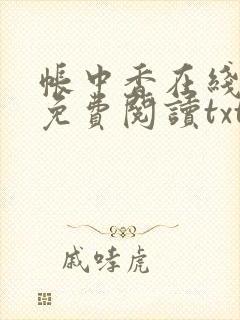 帳中香在綫
免費閱讀txt
戚哮虎